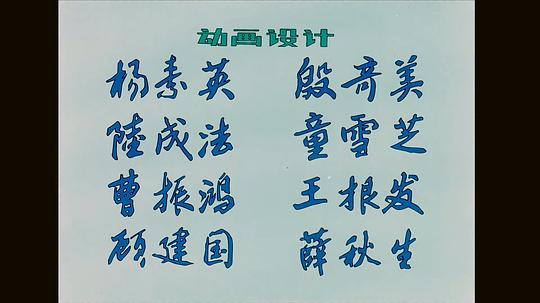 动画设计
杨素英 殷奇美
陸成法 童雪芝
曹振鸿 王根发
顾建国 薛秋生